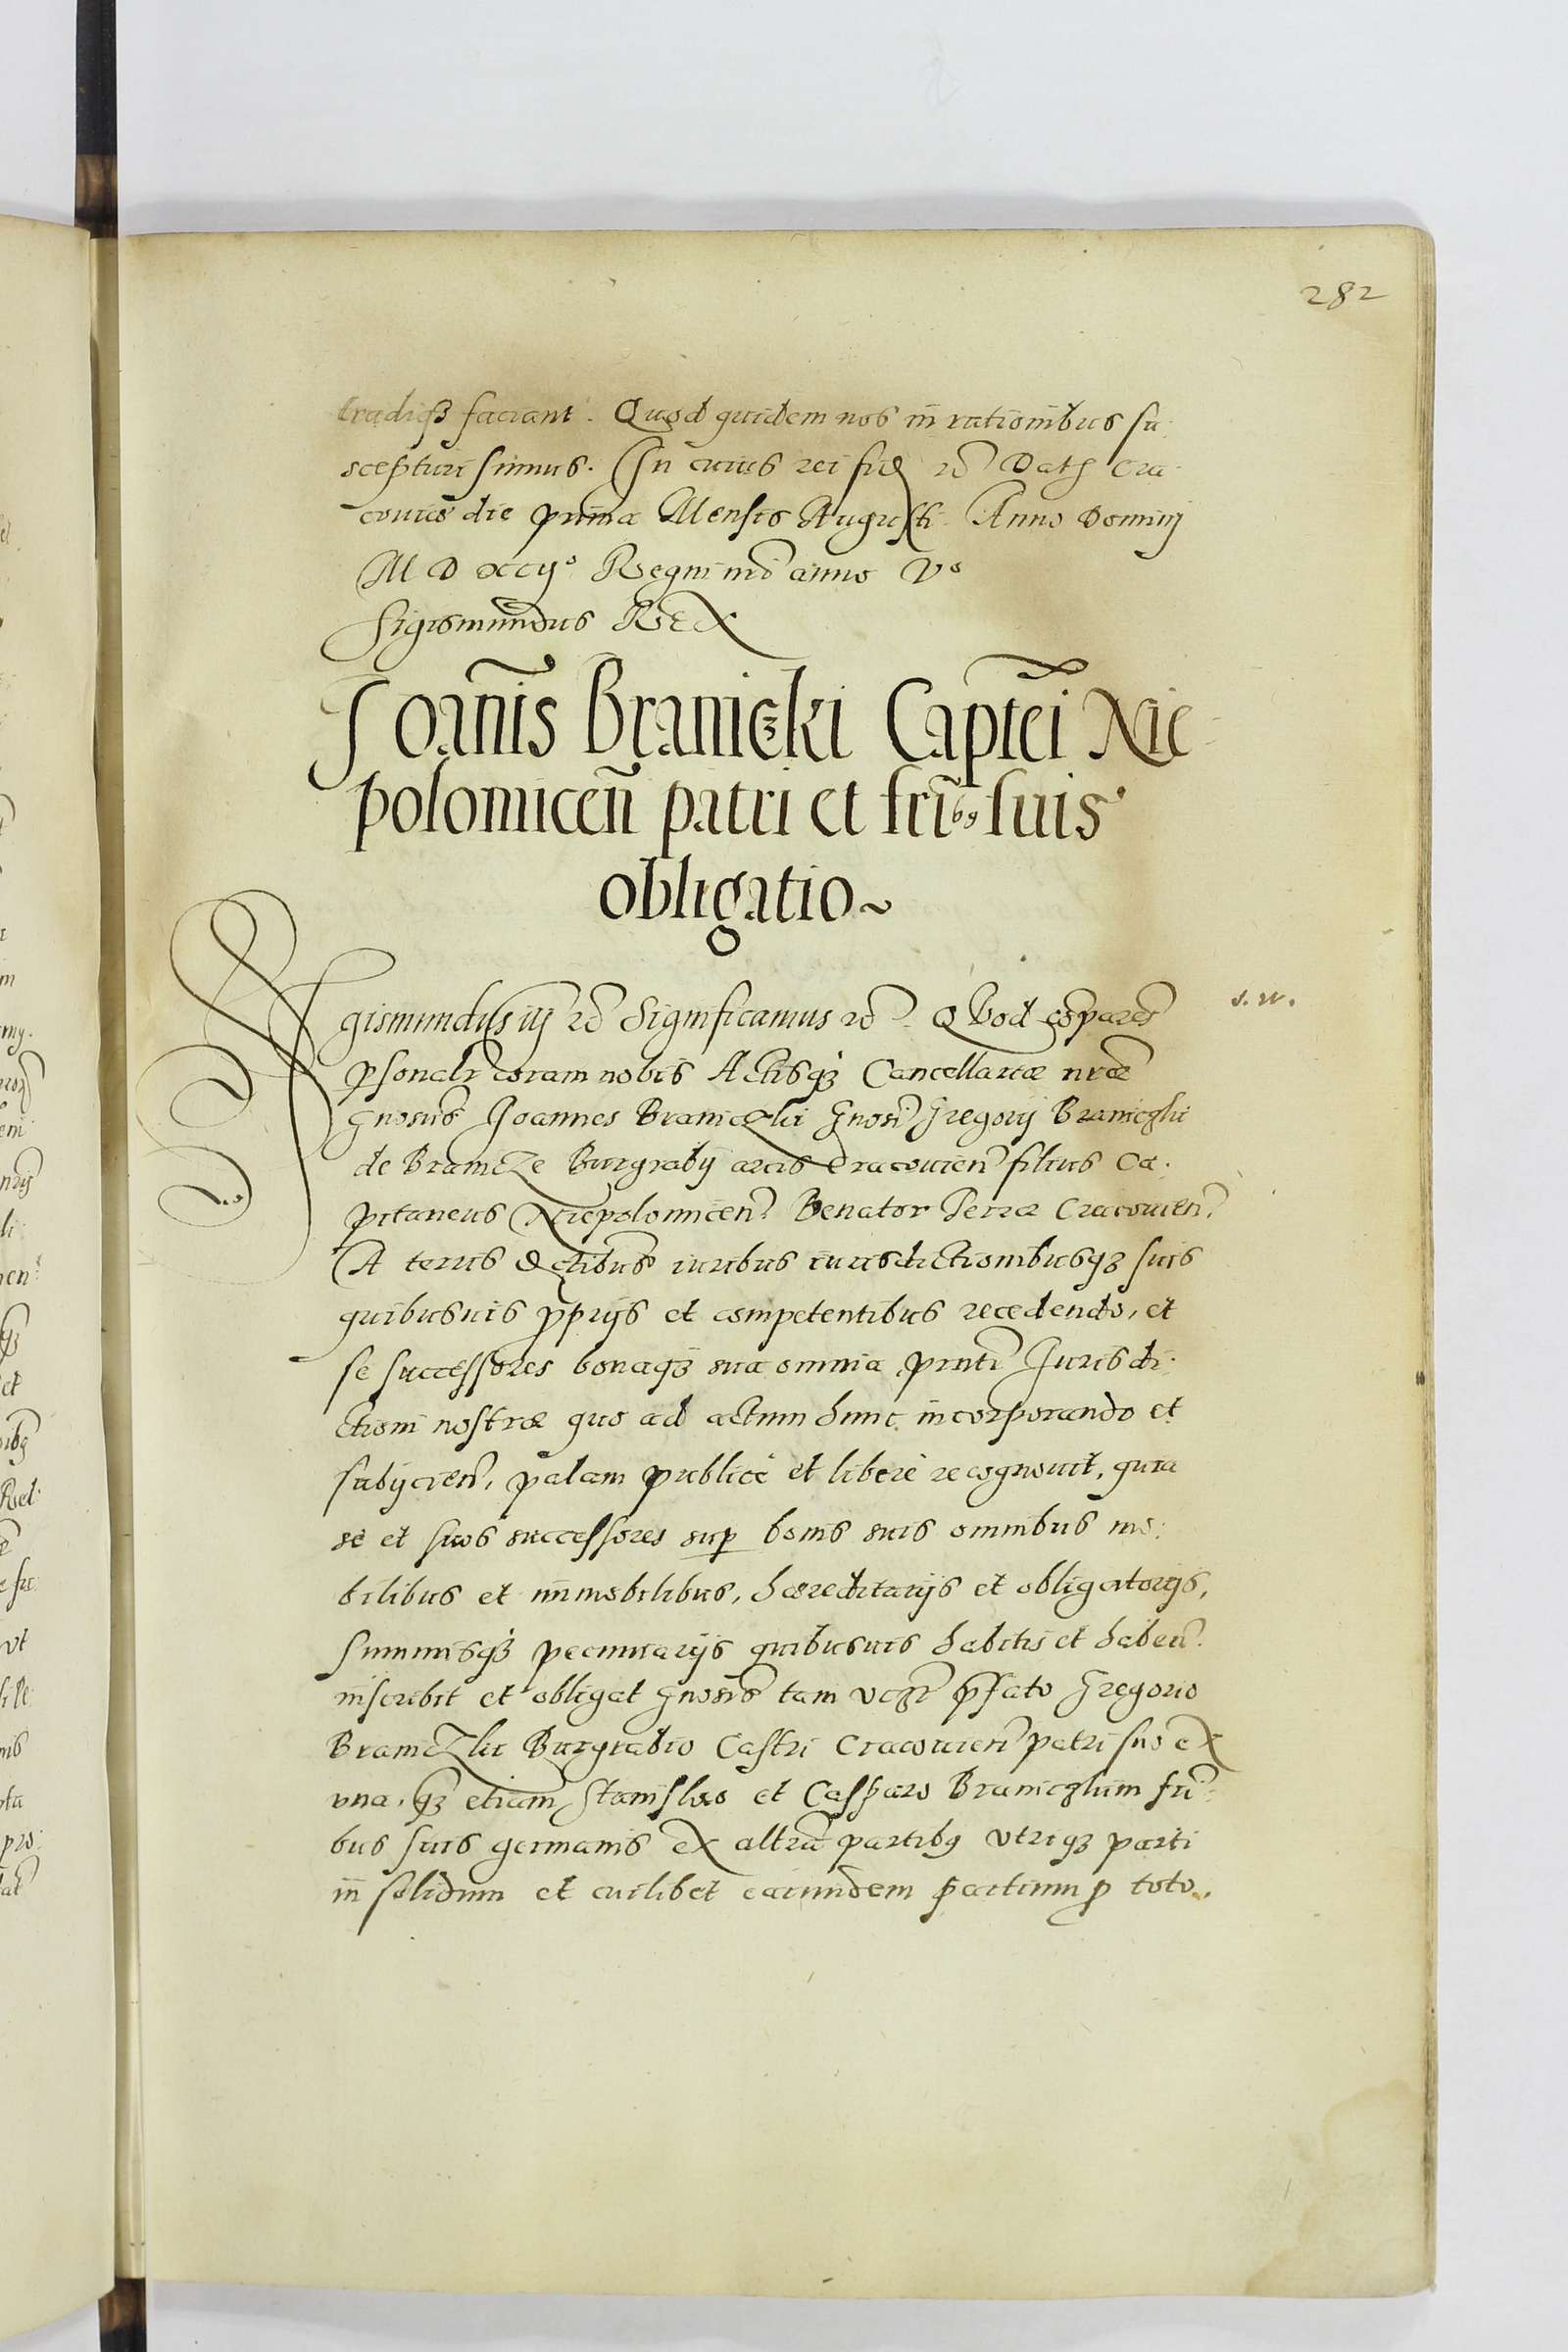 282
tradiq3 faciant. Quod quidem nos in rationibus su
scepturi sumus. In cuius rei fid rc Datũ Cra
coviæ die prima Mensis Augusti Anno Dominj
M D XCij° Regni nrĩ anno V°
Sigismundus REX
Joañis Braniczki Captei Nie
polomiceñ patri et fri᷃bꝰ suis
obligatio
Sigismundus iij rc̃ Significamus rc̃. Quod compareñ
ꝑsonalr coram nobis Actisq3 Cancellariæ nr̃æ
s. w.
Gnosus Joannes Braniczki Gnosi Gregorij Braniczki
de Branicze Burgrabij arcis Cracovien̄ filius Ca
pitaneus Niepolomicen̄. Venator Terræ Cracovien̄.
A terris iuribus iurisdictionibusq3 suis
quibusvis ꝓprijs et competentibus recedendo, et
se successores bonaq3 sua omnia pñti Jurisdi
ctioni nostræ quo ad actum hunc incorporando et
subijcien̄, palam publicè et liberè recognovit, quia
se et suos successores suꝑ bonis suis omnibus mo:
bilibus et immobilibus, hæreditarijs et obligatorijs,
summisq3 pecuniarijs quibusvis habitis et haben̄.
inscribit et obligat Gnosis tam p̃fato Gregorio
Braniczki Burgrabio Castri Cracovien̄ patri suo ex
vna, q3 etiam Stanislao et Casparo Braniczkim fr̃i
bus suis germanis ex altera partibꝰ vtriq3 parti
in solidum et cuilibet earundem partium ꝓ toto.